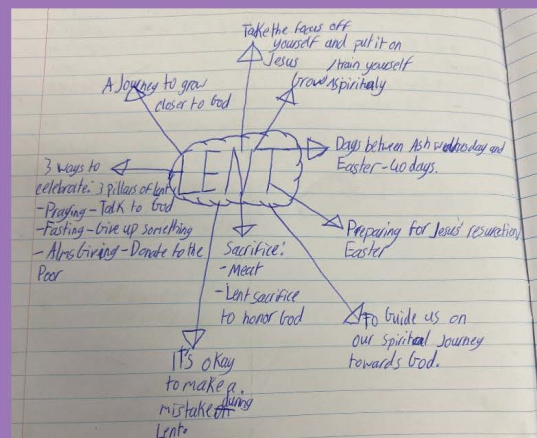 Take the focus off
yourself and put it on
Jesus
/train yourself
Grow spiritualy
A Journey to grow
closer to God
LENT
Days between Ash wednesday and
Easter-40 days.
3 ways to
celebrate: 3 pillars of lent
-Praying-Talk to God
-Fasting-Give up something
-Alms Giving-Donate to the
Poor
Sacrifice:
-Meat
-Lent sacrifice
to honor God
Preparing for Jesus' resurection
Easter
To Guide us on
our spiritual Journey
towards God.
It's okay
to make a.
mistake during
Lent.